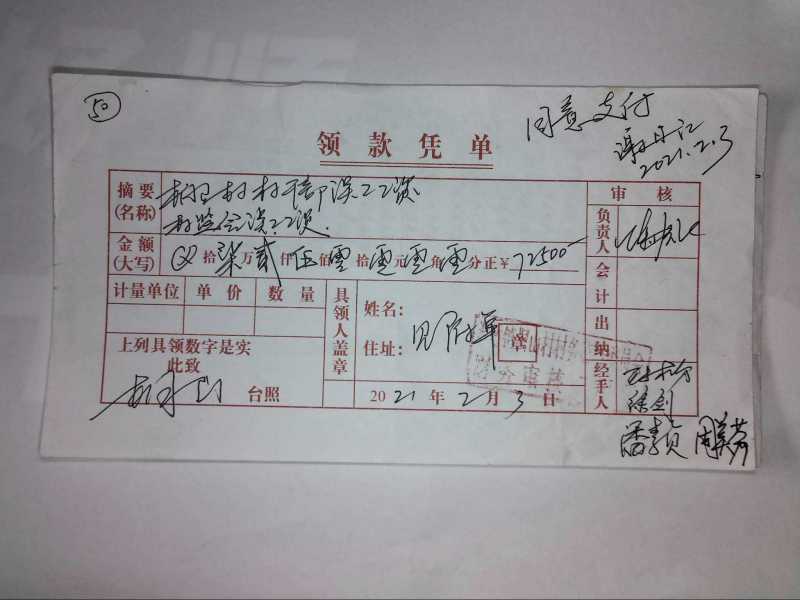 50
同意支付
2021.2.3
领款凭单
摘要
(名称)
村村干部误工工资
村监会误工工资.
审核
负责人
金额
(大写)
拾柒万贰仟伍佰零拾零元零角零分正¥72500-
会计
计量单位 单价 数量
具领人盖章
姓名:
住址:
见后单
章
出纳
上列具领数字是实
此致
台照
2021年2月3日
经手人
徐剑
潘素贞 周美芳